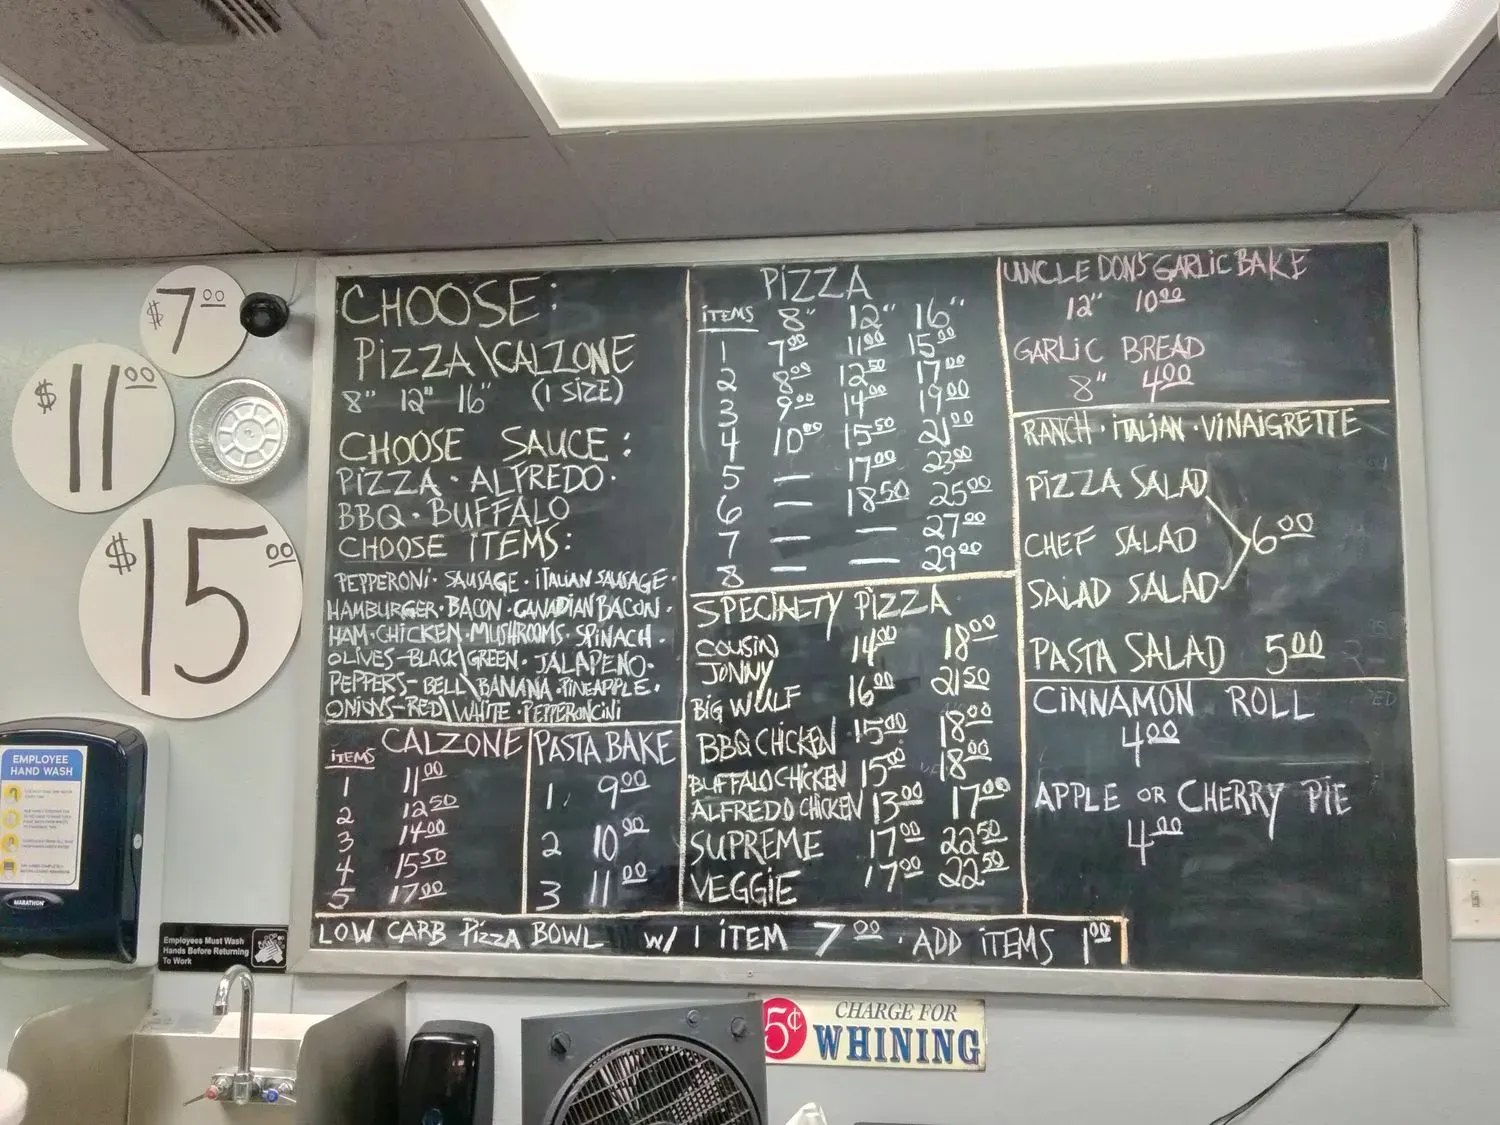 $7.00
$11.00
$15.00
CHOOSE:
PIZZA\CALZONE
8" 12" 16" (1 SIZE)
CHOOSE SAUCE:
PIZZA · ALFREDO ·
BBQ · BUFFALO
CHOOSE ITEMS:
PEPPERONI · SAUSAGE · ITALIAN SAUSAGE ·
HAMBURGER · BACON · CANADIAN BACON ·
HAM · CHICKEN · MUSHROOMS · SPINACH ·
OLIVES-BLACK\GREEN · JALAPENO ·
PEPPERS-BELL\BANANA · PINEAPPLE ·
ONIONS-RED\WHITE · PEPPERONCINI
ITEMS CALZONE
1 11.00
2 12.50
3 14.00
4 15.50
5 17.00
PASTA BAKE
1 9.00
2 10.00
3 11.00
PIZZA
ITEMS 8" 12" 16"
1 7.00 11.00 15.00
2 8.00 12.50 17.00
3 9.00 14.00 19.00
4 10.00 15.50 21.00
5 — 17.00 23.00
6 — 18.50 25.00
7 — — 27.00
8 — — 29.00
SPECIALTY PIZZA
COUSIN JONNY 14.00 18.00
BIG WULF 16.00 21.50
BBQ CHICKEN 15.00 18.00
BUFFALO CHICKEN 15.00 18.00
ALFREDO CHICKEN 13.00 17.00
SUPREME 17.00 22.50
VEGGIE 17.00 22.50
UNCLE DON'S GARLIC BAKE
12" 10.00
GARLIC BREAD
8" 4.00
RANCH · ITALIAN · VINAIGRETTE
PIZZA SALAD
CHEF SALAD 6.00
SALAD SALAD
PASTA SALAD 5.00
CINNAMON ROLL
4.00
APPLE OR CHERRY PIE
4.00
LOW CARB PIZZA BOWL W/ 1 ITEM 7.00 · ADD ITEMS 1.00
EMPLOYEE
HAND WASH
MARATHON
Employees Must Wash
Hands Before Returning
To Work
5¢ CHARGE FOR
WHINING